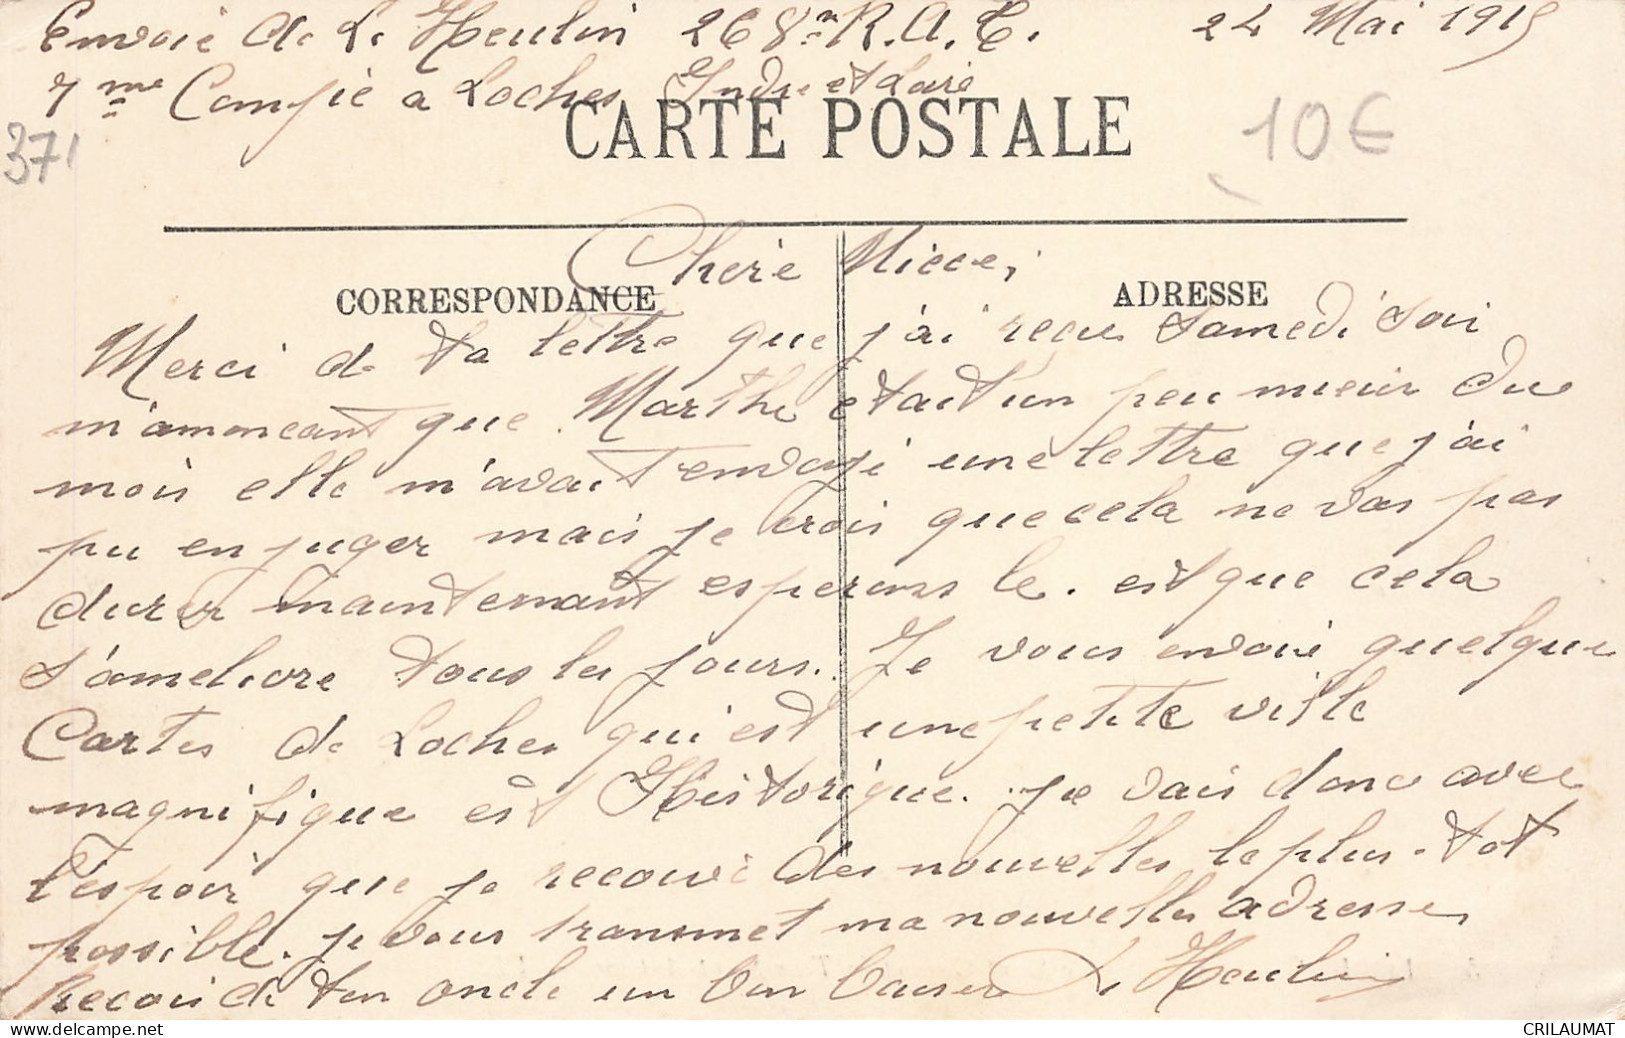 Envoie de L. Heulin 268me R.A.T. 24 Mai 1915
7me Compie a Loches Indre et Loire
CARTE POSTALE
371
10€
Chere Niece,
CORRESPONDANCE
ADRESSE
Merci de ta lettre que j'ai reçue Samedi soir
m'amonceant que Marthe etait un peu mieux du
mois elle m'avait envoyé une lettre que j'ai
pu en juger mais je crois que cela ne vas pas
durer maintenant esperons le. est que cela
s'ameliore tous les jours. Je vous envoie quelque
Cartes de Loches qui est une petite ville
magnifique est Historique. je vais donc avec
l'espoir que je recouvé des nouvelles le plus tot
possible. je vous transmet ma nouvelle adresse,
Recois de ton oncle un bon baiser L. Heulin
CRILAUMAT